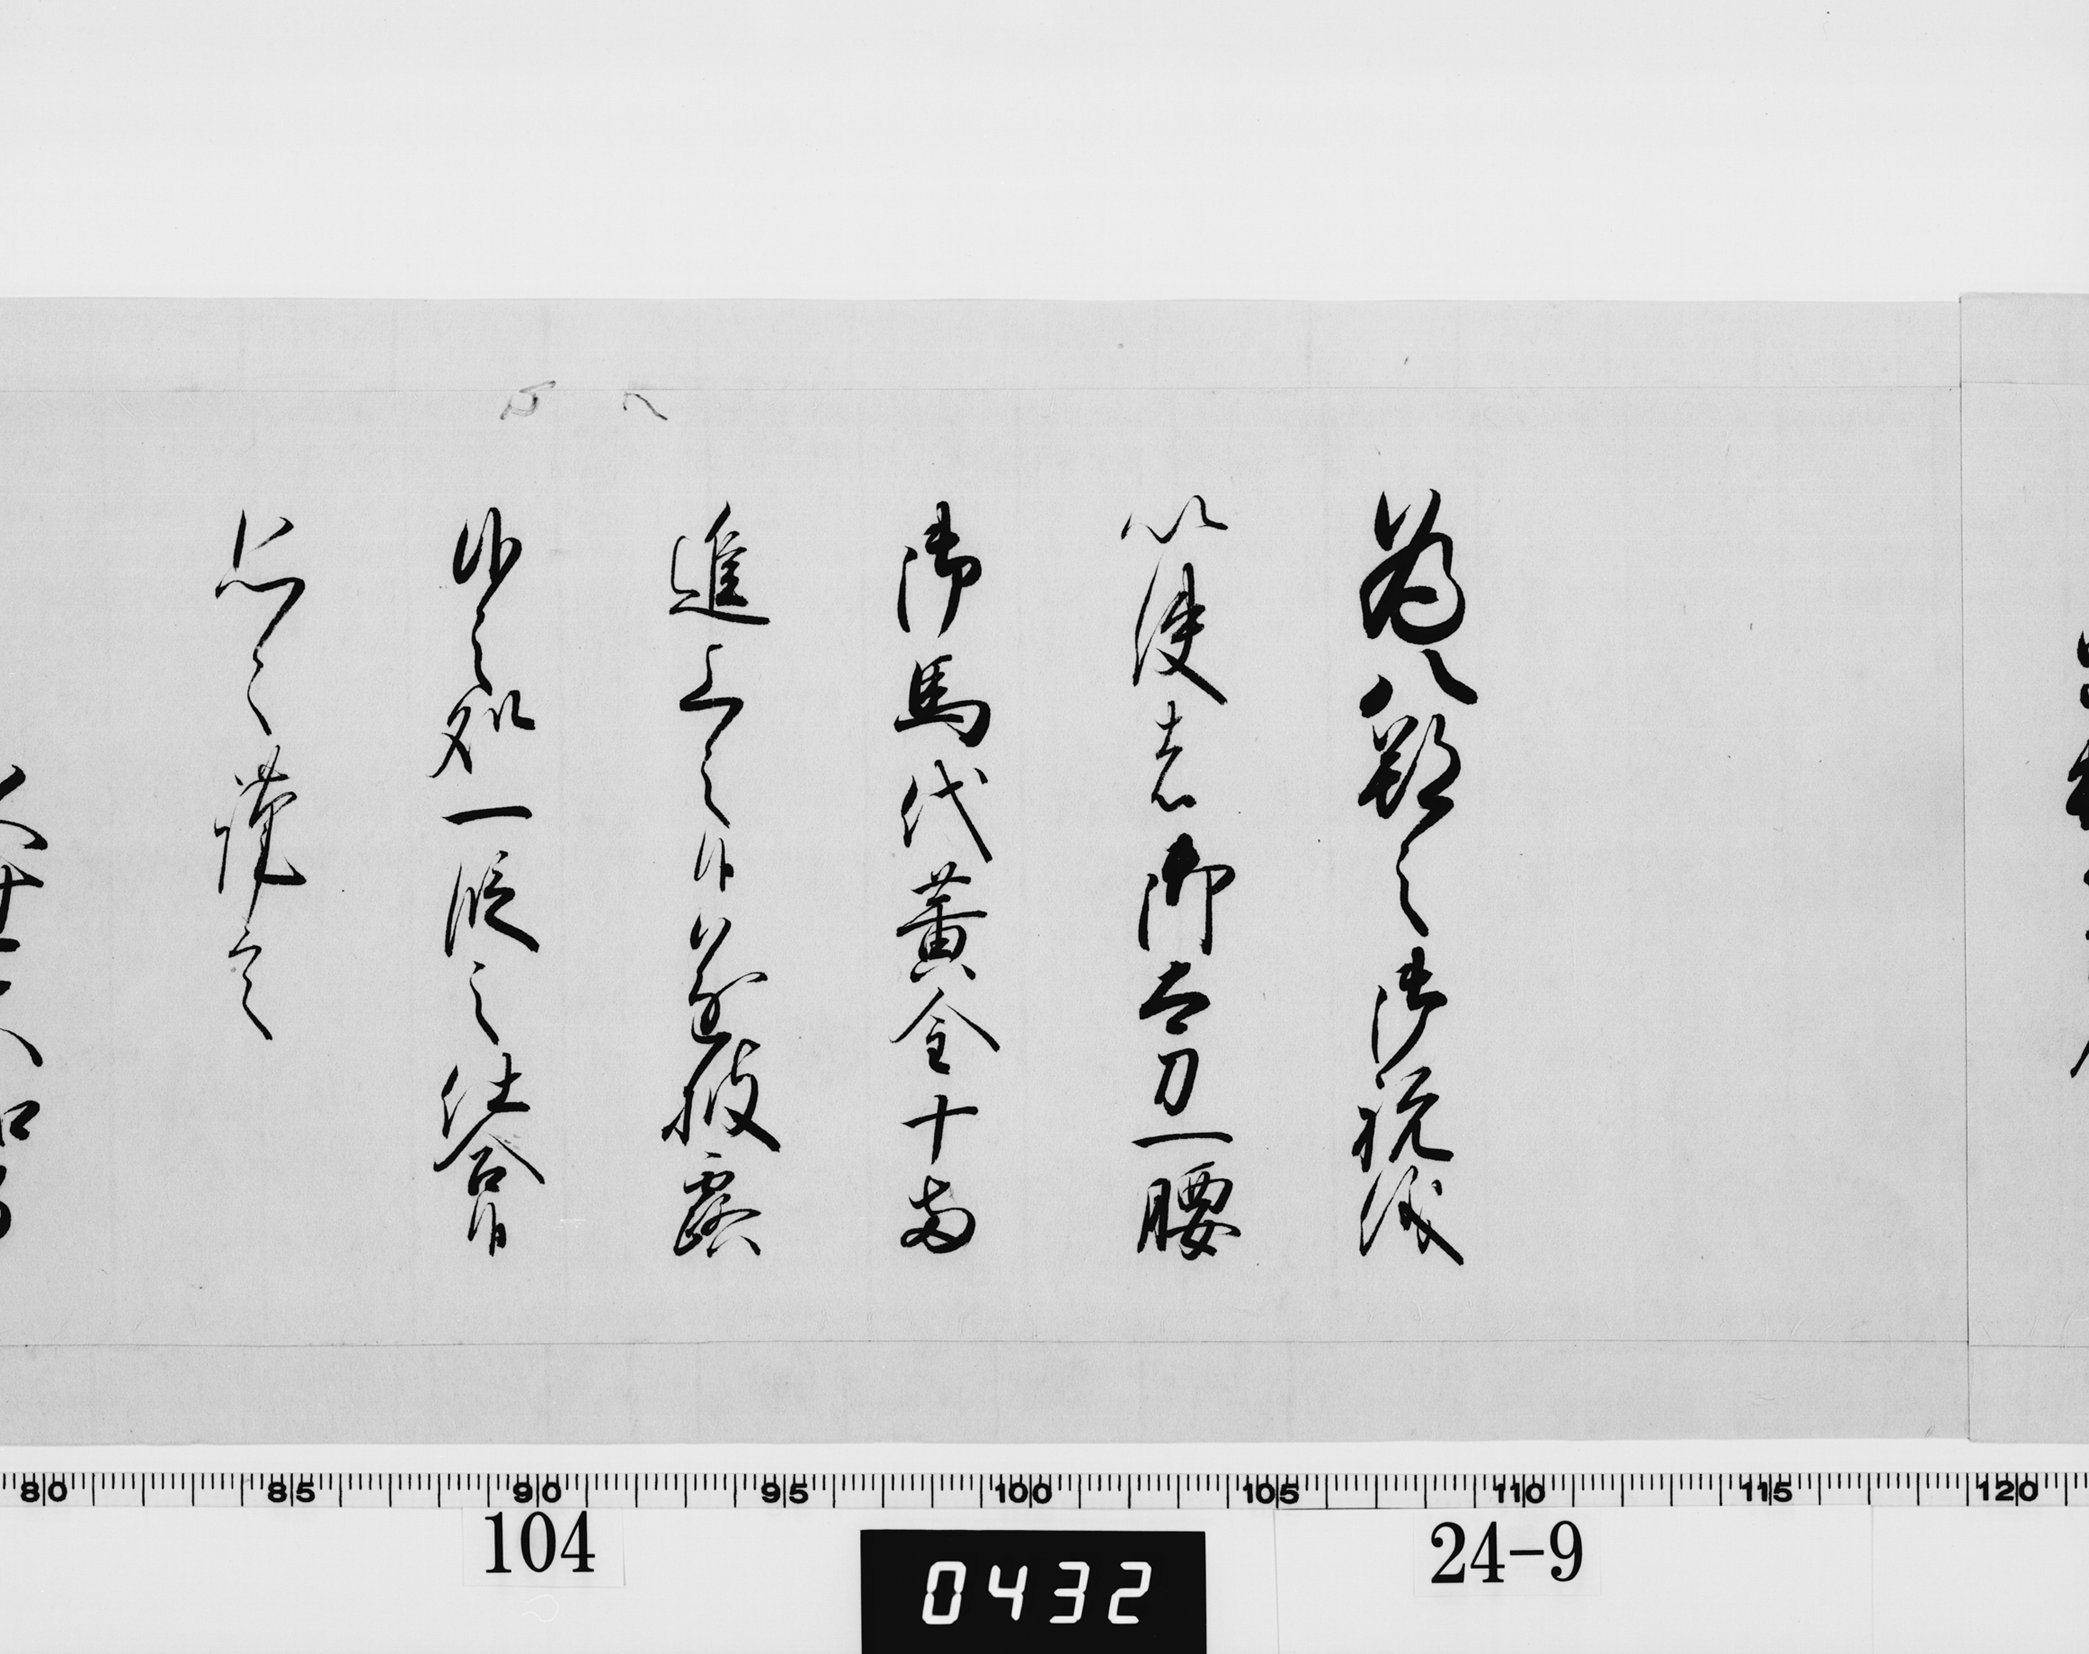 為八朔之御祝儀
以使者御太刀一腰
御馬代黄金十両
進上之候遂披露
候之処一段之仕合候
恐々謹言
80 85 90 95 100 105 110 115 120
104
0432
24-9